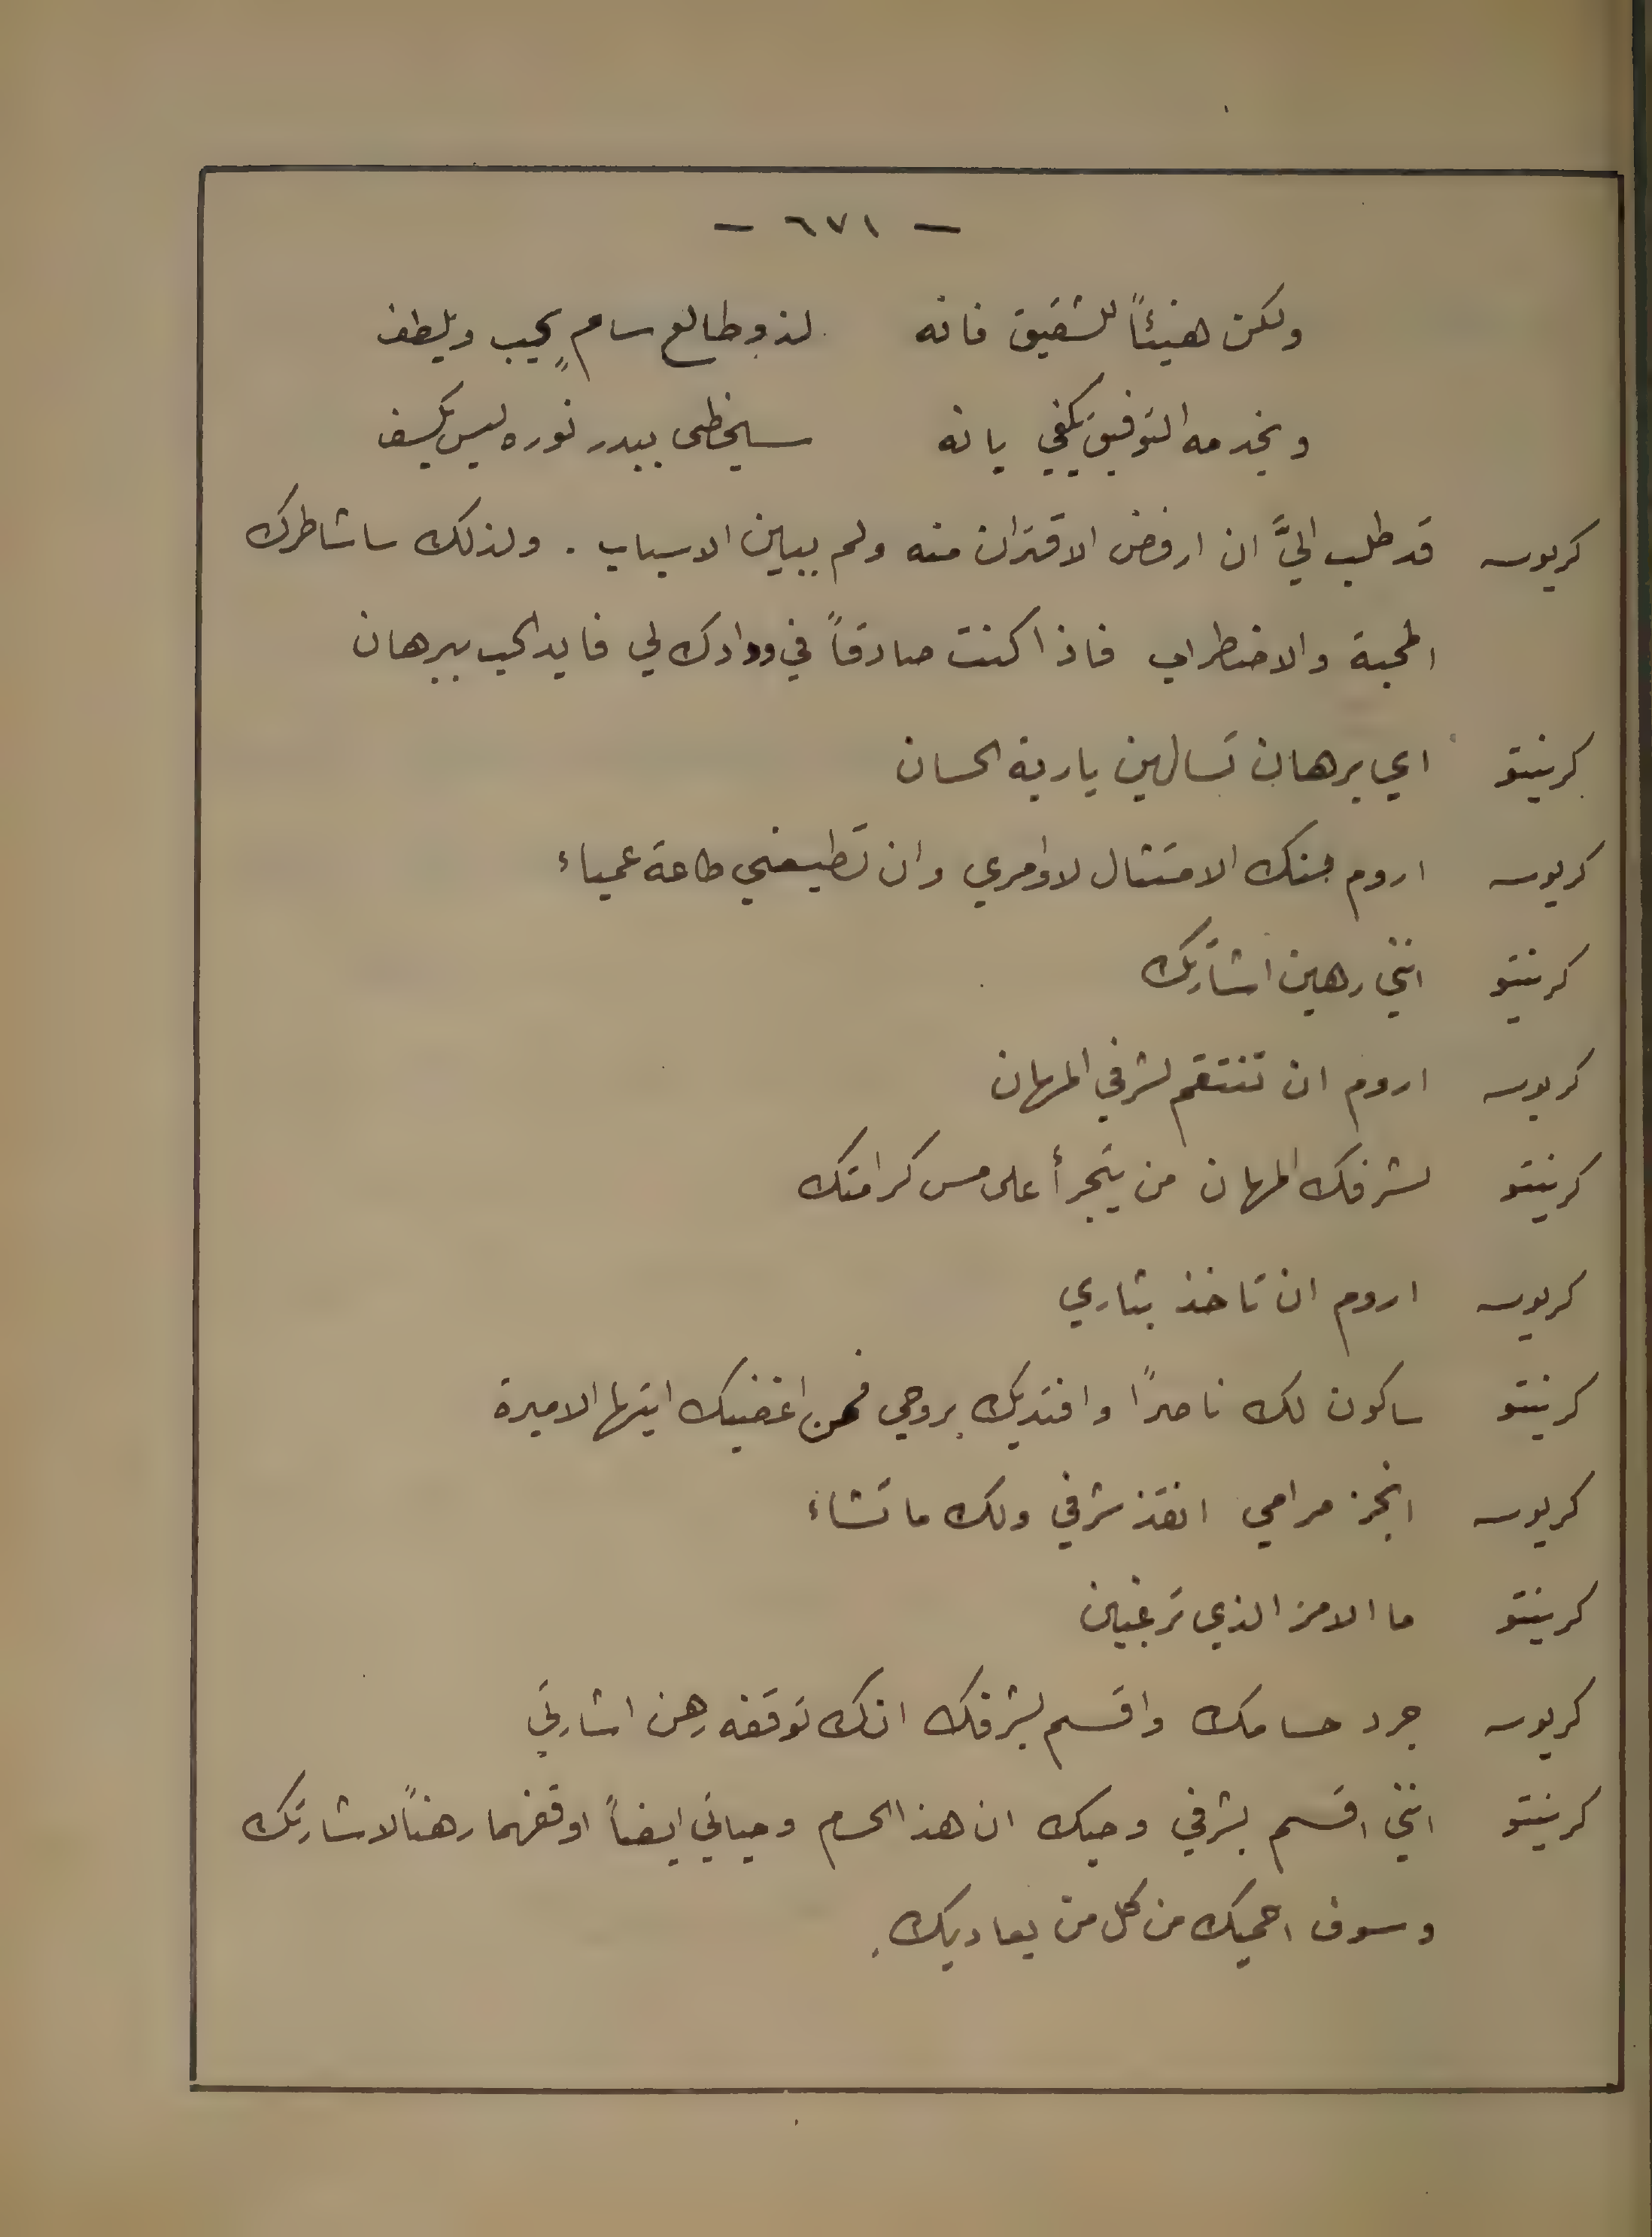 — ٦٧١ —
ولكن هنيئاً للشقيق فانه لذو طالع سامٍ يجيب ويلطف
ويخدمه التوفيق يكفي بانه سيحظى ببدر نوره ليس يكسف
كريوسه قد طلب اليَّ ان ارفض الاقتران منه ولم يبين الاسباب . ولذلك ساشاطرك
المحبة والاضطراب فاذا كنت صادقاً في ودادك لي فايد الحب ببرهان
كرينتو اي برهان تسالين يا ربة الحسان
كريوسه اروم منك الامتثال لاوامري وان تطيعني طاعة عمياء
كرينتو انني رهين اشارتك
كريوسه اروم ان تنتقم لشرفي المهان
كرينتو لشرفك المهان من يتجرأ على مس كرامتك
كريوسه اروم ان تاخذ بثاري
كرينتو ساكون لك ناصرًا وافتديك بروحي فمن اغضبك ايتها الاميرة
كريوسه انجز مرامي انقذ شرفي ولك ما تشاء
كرينتو ما الامر الذي ترغبين
كريوسه جرد حسامك واقسم بشرفك انك توقفه رهن اشارتي
كرينتو انني اقسم بشرفي وحبك ان هذا الحسام وحياتي ايضاً اوقفهما رهناً لاشارتك
وسوف احميك من كل من يعاديك .